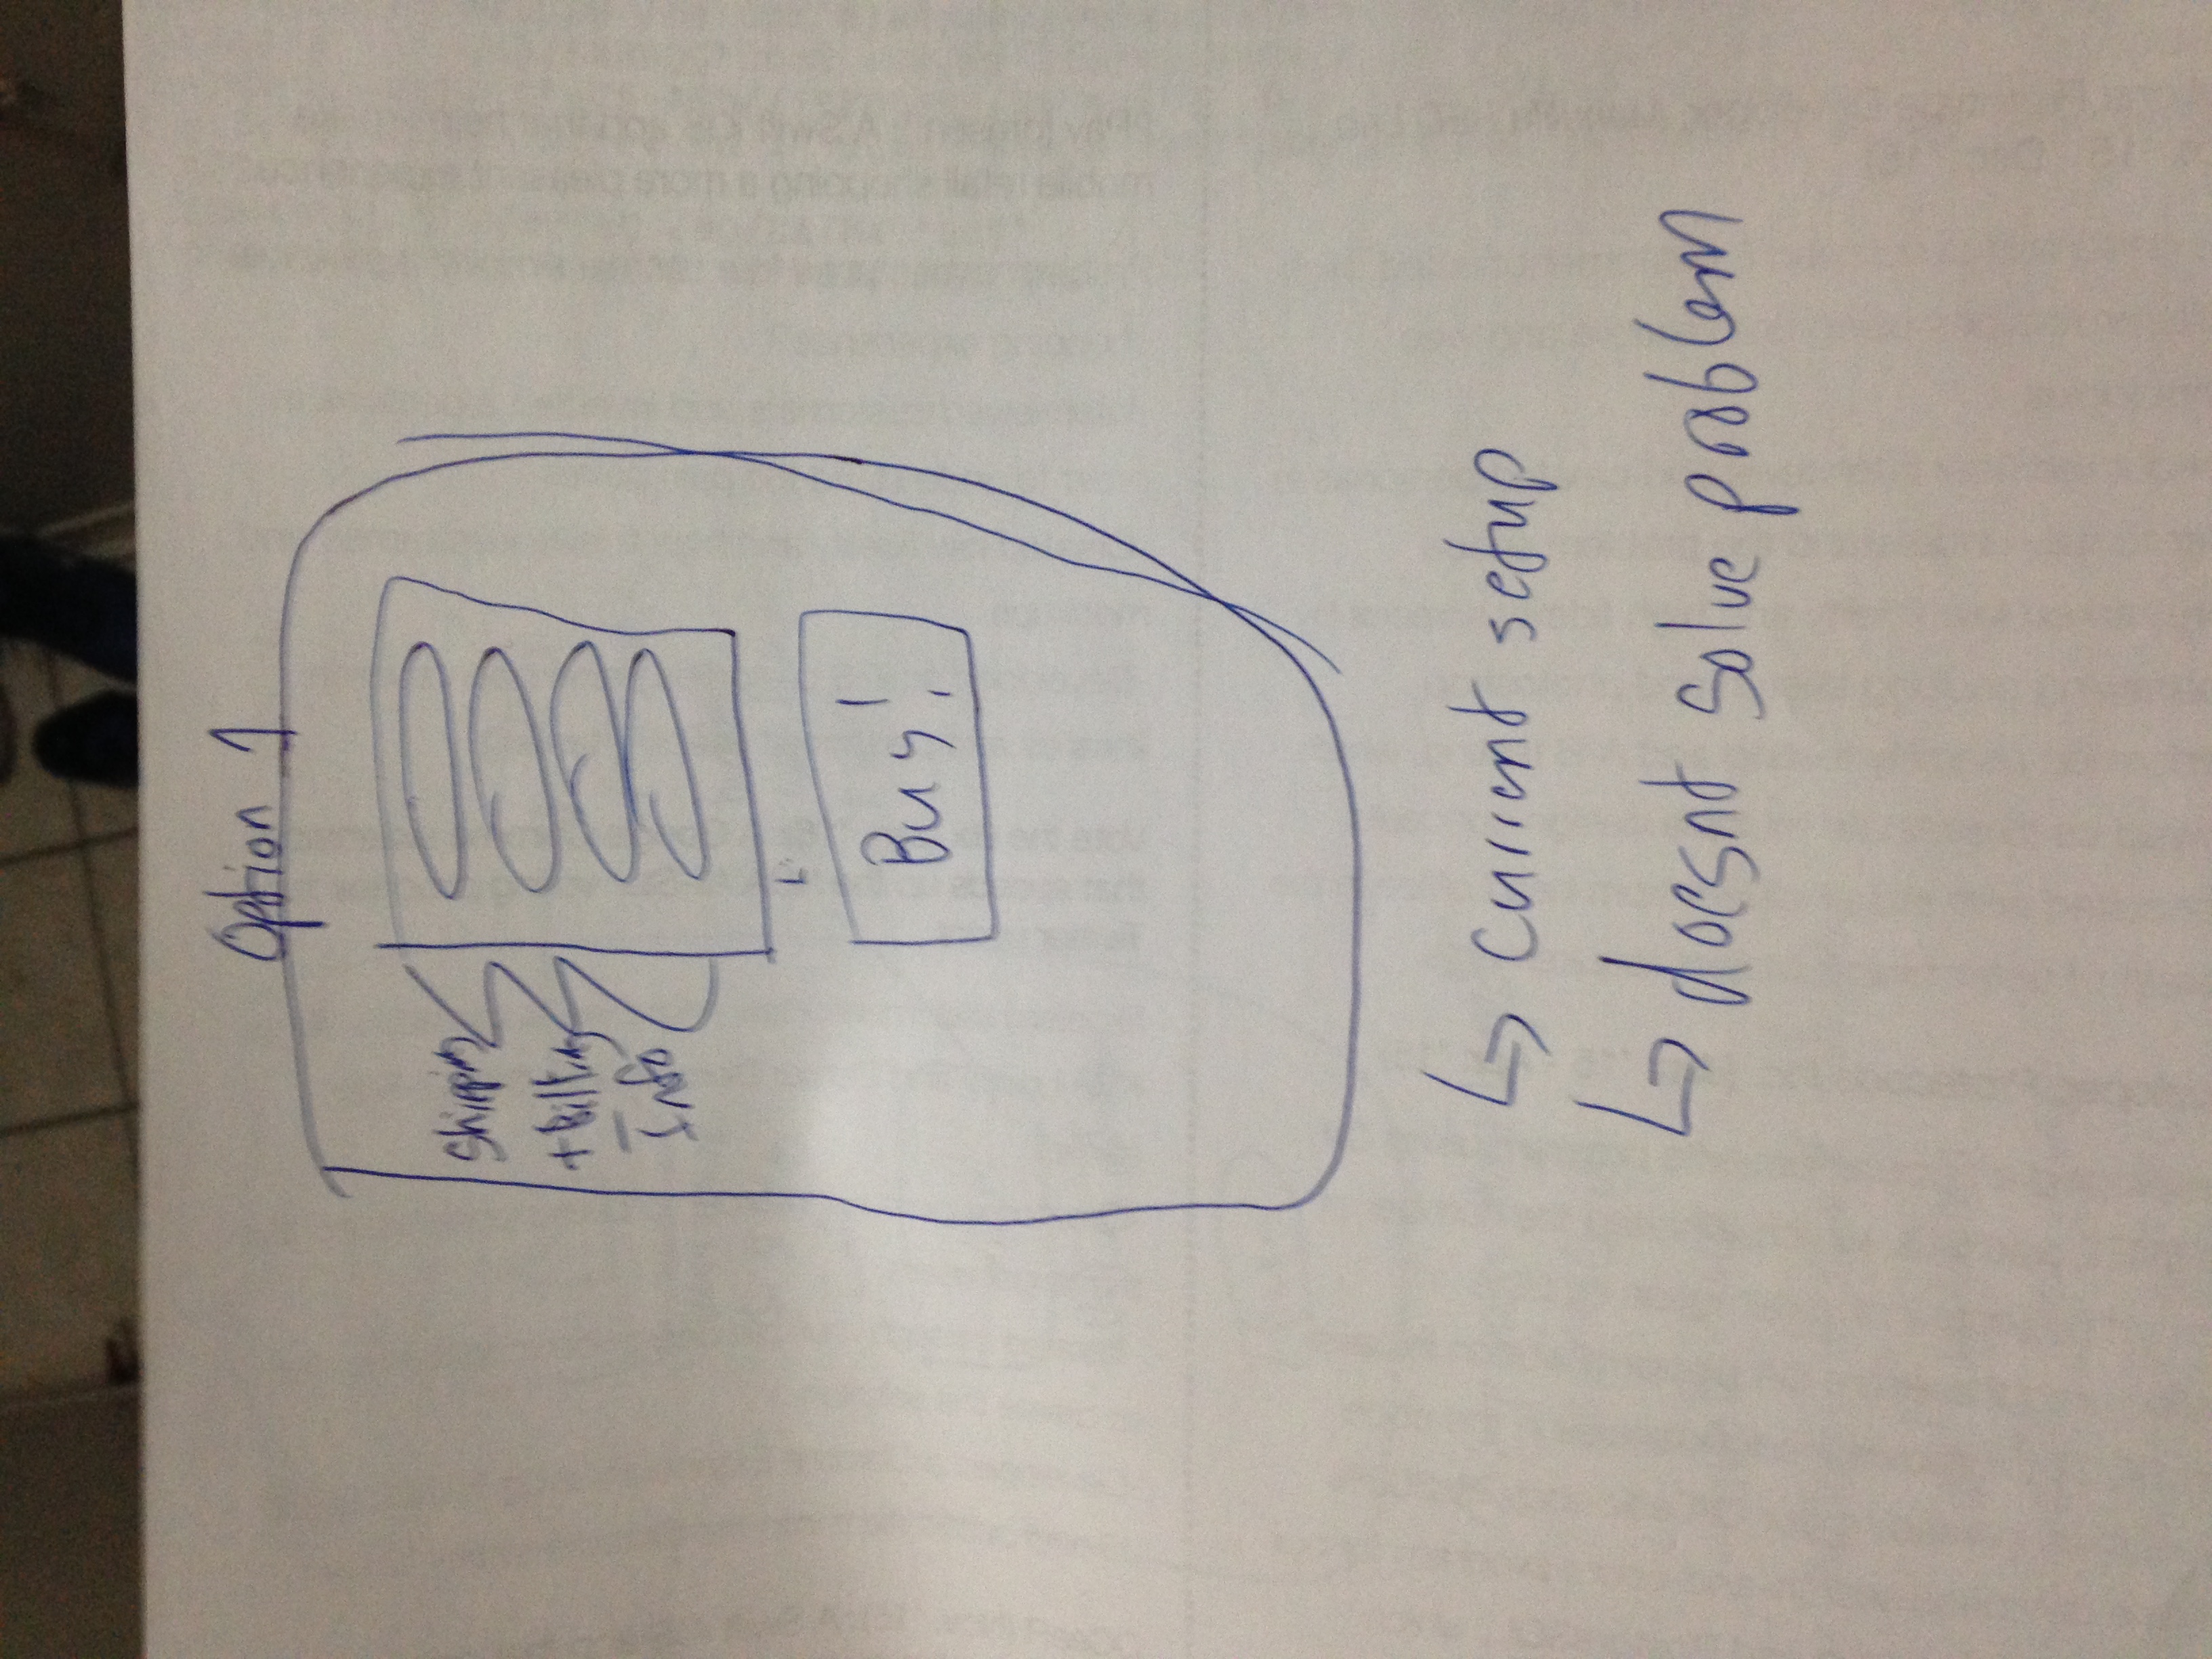 Option 1
Shipping
+ Billing
Info
Buy!
↳ current setup
↳ doesnt solve problem